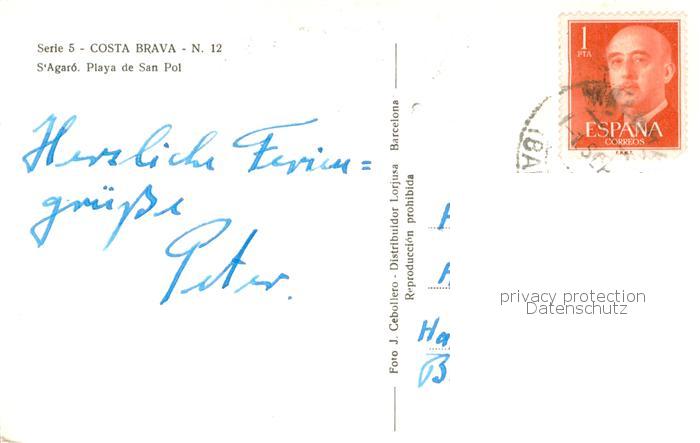 Serie 5 - COSTA BRAVA - N. 12
S'Agaró. Playa de San Pol
Herzliche Ferien=
grüße
Peter.
Foto J. Cebollero - Distribuidor Lorjusa Barcelona
Reproducción prohibida
1
PTA
ESPAÑA
CORREOS
F.N.M.T.
(BA
SEP
Ha
B
privacy protection
Datenschutz